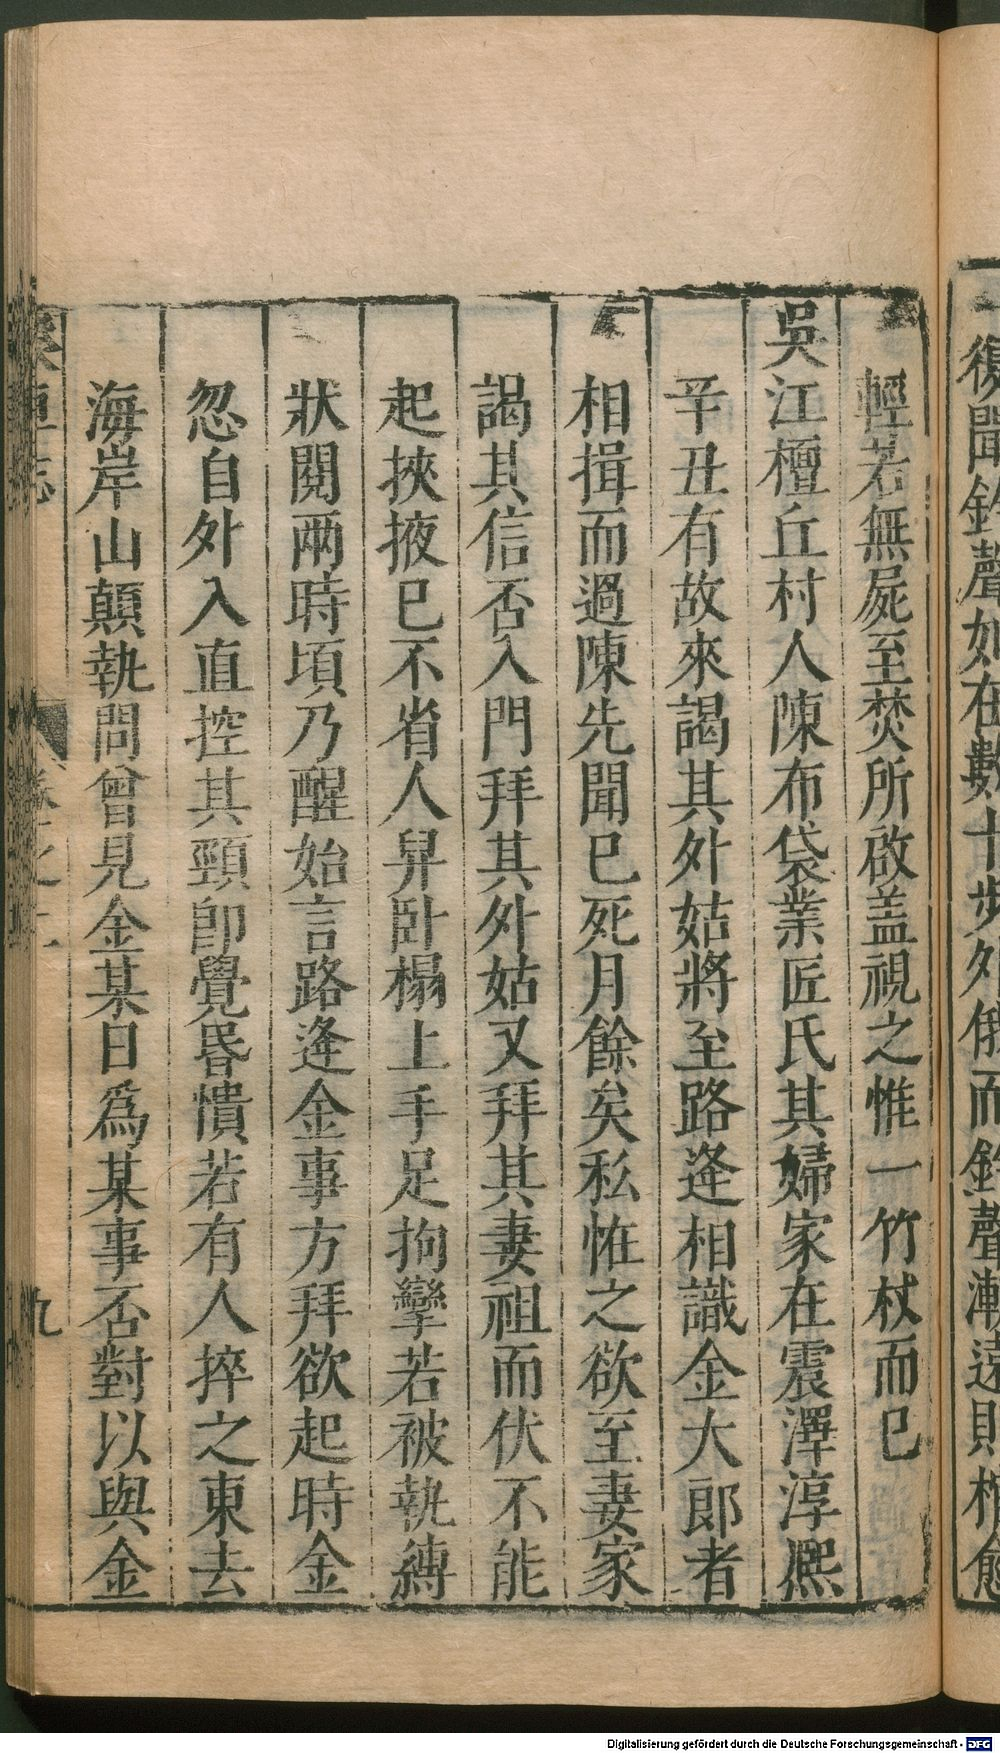 輕若無屍至焚所啟盖視之惟一竹杖而巳
吳江檀丘村人陳布袋業匠氏其婦家在震澤淳熈
辛丑有故來謁其外姑將至路逄相識金大郎者
相揖而過陳先聞巳死月餘矣私恠之欲至妻家
謁其信否入門拜其外姑又拜其妻祖而伏不能
起挾掖巳不省人舁卧榻上手足拘攣若被執縛
狀閱兩時頃乃醒始言路逄金事方拜欲起時金
忽自外入直控其頸卽覺昬憒若有人捽之東去
海岸山顛執問曾見金某日爲某事否對以與金
車志
九
復聞鈴聲如在數十步外俄而鈴聲漸遠則棺愈
Digitalisierung gefördert durch die Deutsche Forschungsgemeinschaft - DFG